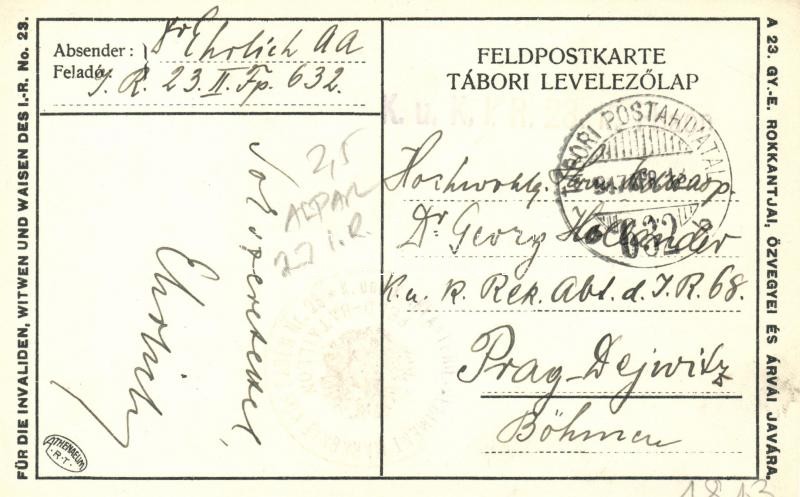 FÜR DIE INVALIDEN, WITWEN UND WAISEN DES I.-R. No. 23.
Absender:
Feladó:
Dr Ehrlich AA
I. R. 23. II. Fp. 632.
Sok szeretettel
Ehrlich
2,5
27 I.R.
ATHENAEUM
R.T.
FELDPOSTKARTE
TÁBORI LEVELEZŐLAP
K. u. K. I. R.
TÁBORI POSTAHIVATAL
632
Hochwohlg.
Dr Georg Holländer
K. u. K. Rek. Abt. d. I. R. 68.
Prag-Dejwitz
Böhmen
A 23. GY.-E. ROKKANTJAI, ÖZVEGYEI ÉS ÁRVÁI JAVÁRA.
1813